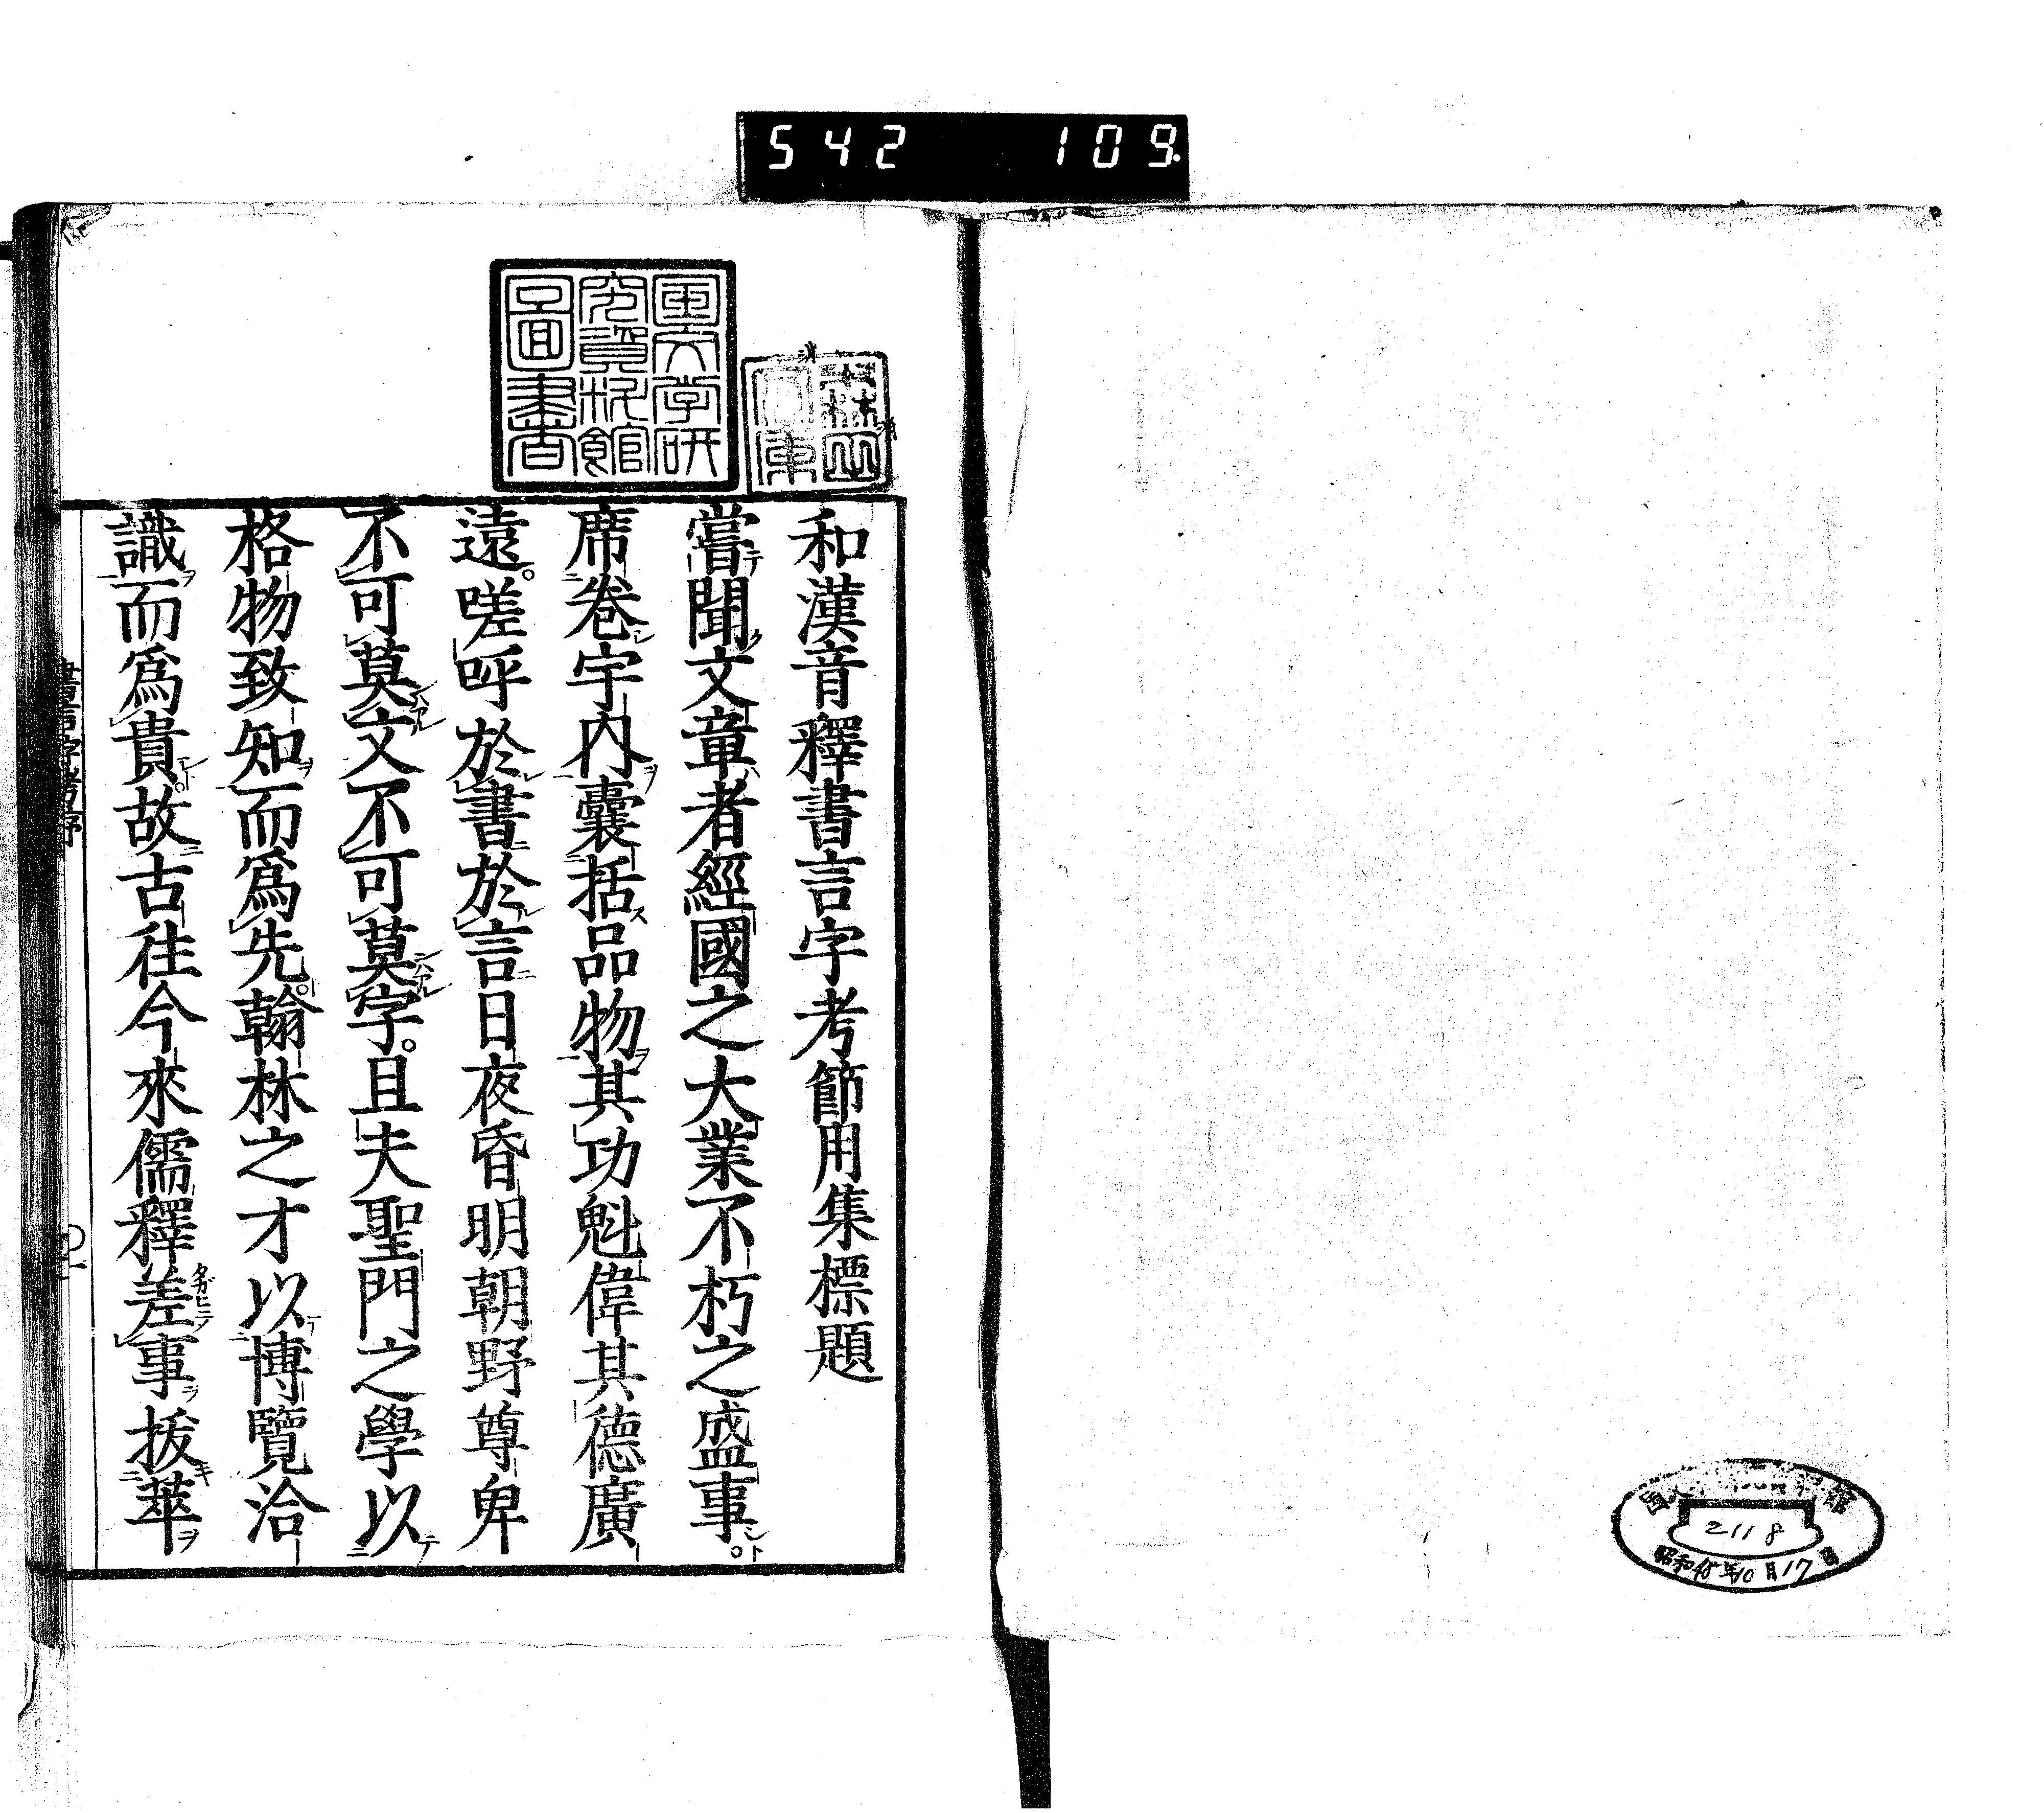 542 109
國文学研
究資料館
圖書
和漢音釋書言字考節用集標題
嘗聞文章者經國之大業不朽之盛事
席卷宇内囊括品物其功魁偉其德廣
遠。嗟呼於書於言日夜昏明朝野尊卑
不可莫文不可莫字。且夫聖門之學以
格物致知而爲先。翰林之才以博覽洽
識而爲貴。故古往今來儒釋差事拔萃
2118
昭和48年10月17日